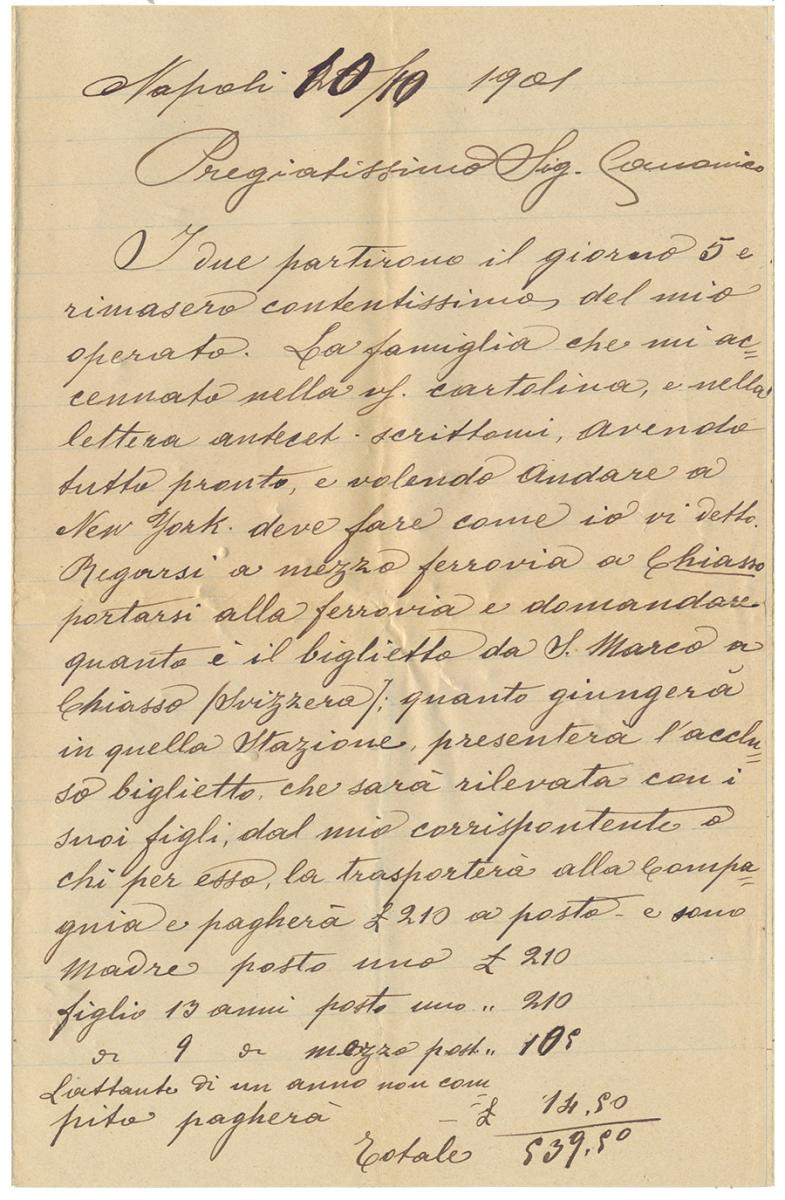 Napoli 10/10 1901
Pregiatissimo Sig. Canonico
I due partirono il giorno 5 e
rimasero contentissimo, del mio
operato. La famiglia che mi ac=
cennato nella vs. cartolina, e nella
lettera antecet. scrittomi, avendo
tutto pronto, e volendo andare a
New York. deve fare come io vi detto.
Regarsi a mezzo ferrovia a Chiasso
portarsi alla ferrovia e domandare
quanto è il biglietto da S. Marco a
Chiasso (Svizzera); quanto giungerà
in quella Stazione, presenterà l'acclu=
so biglietto, che sarà rilevata con i
suoi figli, dal mio corrispontente o
chi per esso, la trasporterà alla Compa=
gnia e pagherà £ 210 a posto - e sono
Madre posto uno £ 210
figlio 13 anni posto uno " 210
" 9 " mezzo post. " 105
Lattante di un anno non com=
pito pagherà - £ 14.50
Totale 539.50